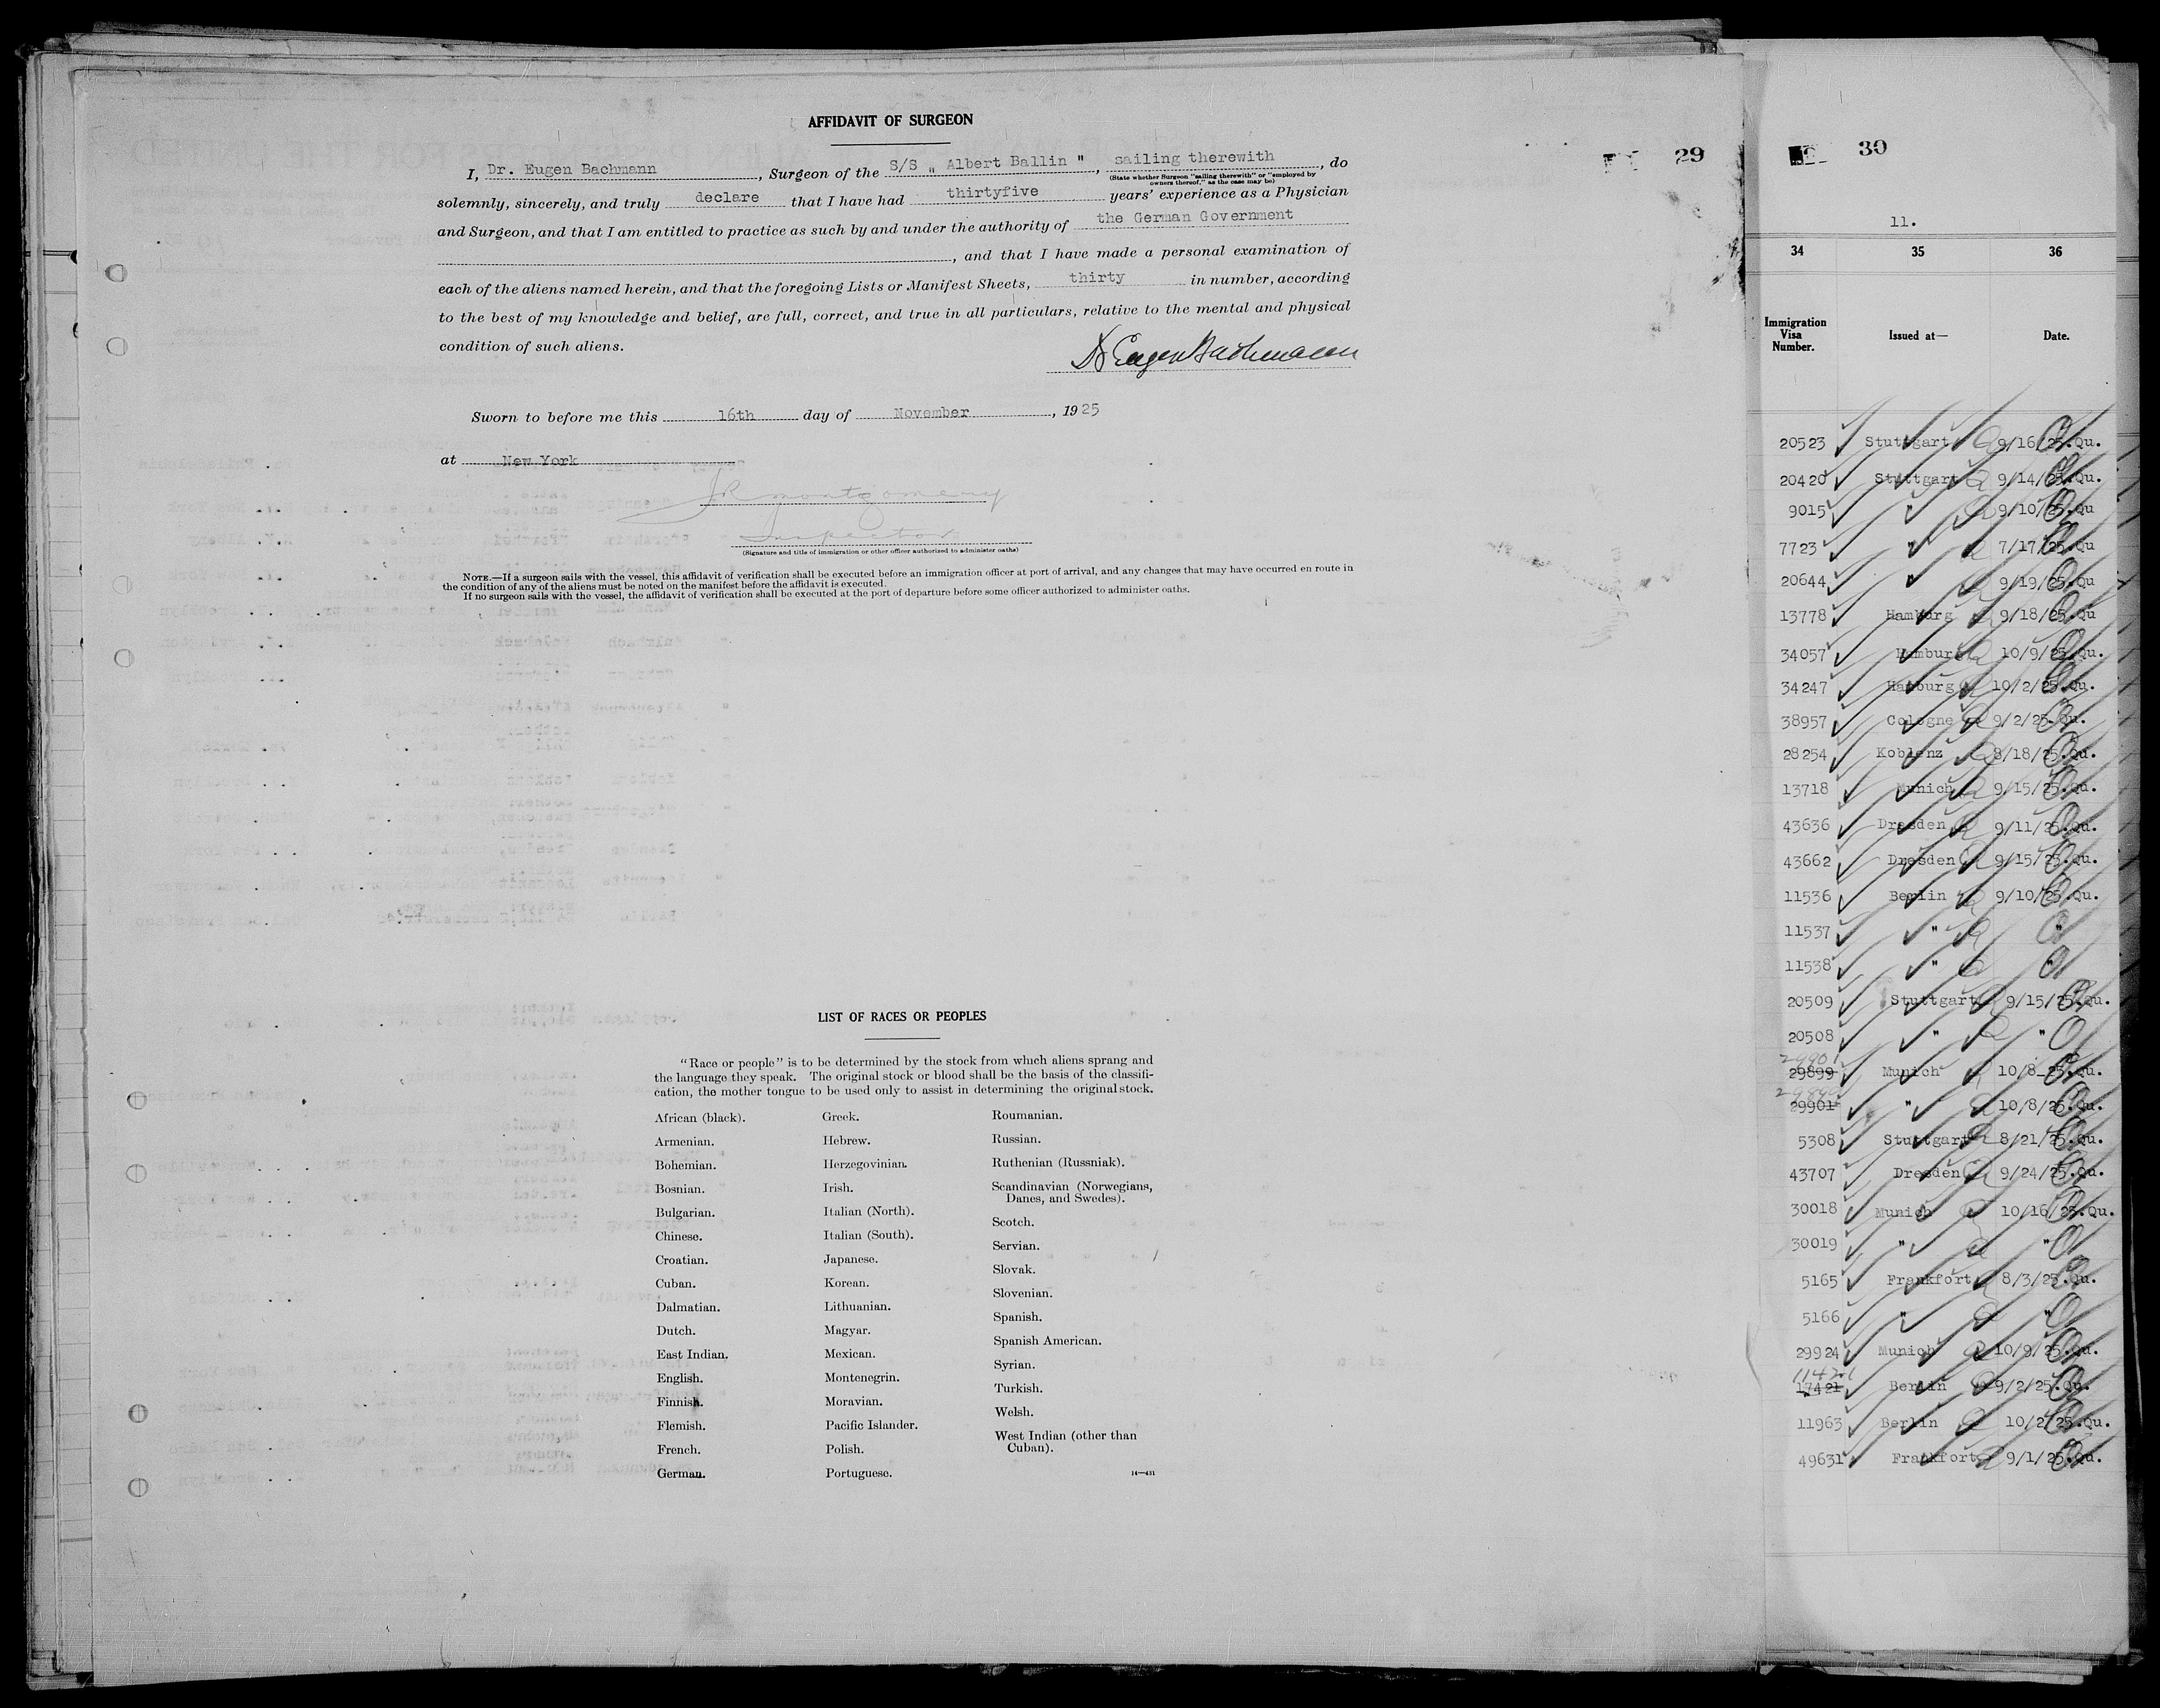 AFFIDAVIT OF SURGEON
I, Dr. Eugen Bachmann, Surgeon of the S/S „ Albert Ballin ", sailing therewith, do
(State whether Surgeon "sailing therewith" or "employed by
owners thereof," as the case may be)
solemnly, sincerely, and truly declare that I have had thirtyfive years' experience as a Physician
and Surgeon, and that I am entitled to practice as such by and under the authority of the German Government
, and that I have made a personal examination of
each of the aliens named herein, and that the foregoing Lists or Manifest Sheets, thirty in number, according
to the best of my knowledge and belief, are full, correct, and true in all particulars, relative to the mental and physical
condition of such aliens.
Dr Eugen Bachmann
Sworn to before me this 16th day of November, 1925
at New York
JR Montgomery
Inspector
(Signature and title of immigration or other officer authorized to administer oaths)
NOTE.—If a surgeon sails with the vessel, this affidavit of verification shall be executed before an immigration officer at port of arrival, and any changes that may have occurred en route in
the condition of any of the aliens must be noted on the manifest before the affidavit is executed.
If no surgeon sails with the vessel, the affidavit of verification shall be executed at the port of departure before some officer authorized to administer oaths.
29
LIST OF RACES OR PEOPLES
"Race or people" is to be determined by the stock from which aliens sprang and
the language they speak. The original stock or blood shall be the basis of the classifi-
cation, the mother tongue to be used only to assist in determining the original stock.
African (black).
Armenian.
Bohemian.
Bosnian.
Bulgarian.
Chinese.
Croatian.
Cuban.
Dalmatian.
Dutch.
East Indian.
English.
Finnish.
Flemish.
French.
German.
Greek.
Hebrew.
Herzegovinian.
Irish.
Italian (North).
Italian (South).
Japanese.
Korean.
Lithuanian.
Magyar.
Mexican.
Montenegrin.
Moravian.
Pacific Islander.
Polish.
Portuguese.
Roumanian.
Russian.
Ruthenian (Russniak).
Scandinavian (Norwegians,
Danes, and Swedes).
Scotch.
Servian.
Slovak.
Slovenian.
Spanish.
Spanish American.
Syrian.
Turkish.
Welsh.
West Indian (other than
Cuban).
14—431
30
11.
34 35 36
Immigration
Visa
Number.
Issued at—
Date.
20523 Stuttgart 9/16/25.Qu.
20420 Stuttgart 9/14/25.Qu.
9015 " 9/10/25.Qu
7723 " 7/17/25.Qu
20644 " 9/19/25.Qu
13778 Hamburg 9/18/25.Qu
34057 Hamburg 10/9/25.Qu.
34247 Hamburg 10/2/25.Qu.
38957 Cologne 9/2/25.Qu.
28254 Koblenz 8/18/25.Qu.
13718 Munich 9/15/25.Qu.
43636 Dresden 9/11/25.Qu.
43662 Dresden 9/15/25.Qu.
11536 Berlin 9/10/25.Qu.
11537 " "
11538 " "
20509 Stuttgart 9/15/25.Qu.
20508 " "
29901
29899 Munich 10/8_25.Qu.
29901 " 10/8/25.Qu.
5308 Stuttgart 8/21/25.Qu.
43707 Dresden 9/24/25.Qu.
30018 Munich 10/16/25.Qu.
30019 " "
5165 Frankfort 8/3/25.Qu.
5166 " "
29924 Munich 10/9/25.Qu.
11421
17421 Berlin 9/2/25.Qu.
11963 Berlin 10/2/25.Qu.
49631 Frankfort 9/1/25.Qu.